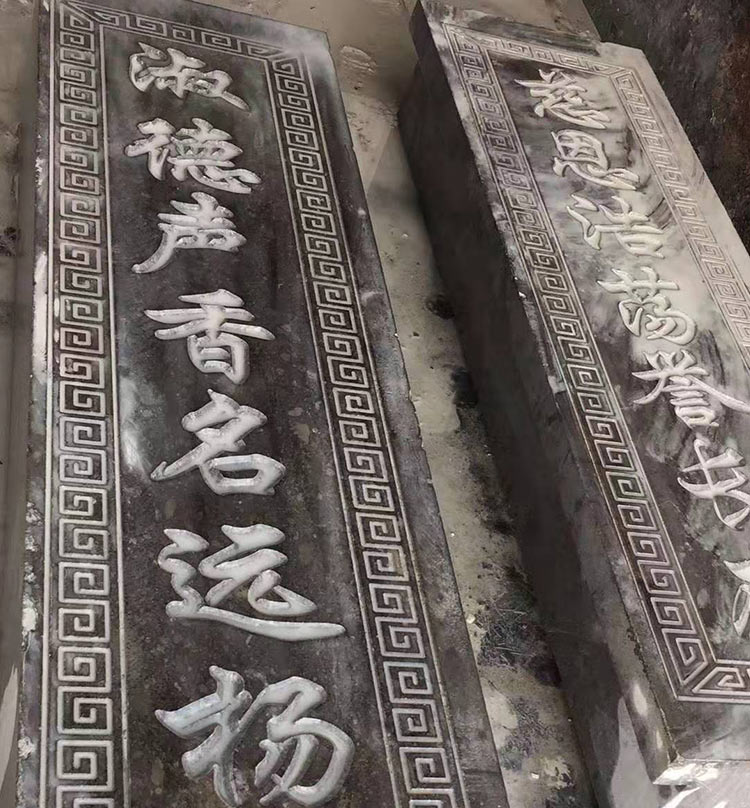 慈恩浩荡誉
淑德声香名远扬